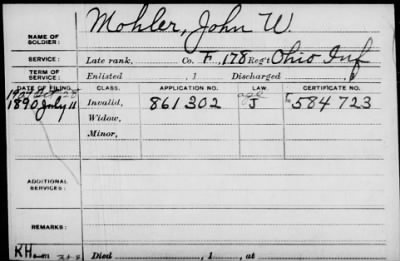 NAME OF SOLDIER: Mohler, John W.
SERVICE: Late rank, Co. F, 178 Reg't Ohio Inf
TERM OF SERVICE: Enlisted , 1 Discharged , 1
DATE OF FILING. CLASS. APPLICATION NO. LAW. CERTIFICATE NO.
1890 July 11 Invalid, 861302 J 584723
Widow,
Minor,
ADDITIONAL SERVICES:
REMARKS:
Died , 1 , at